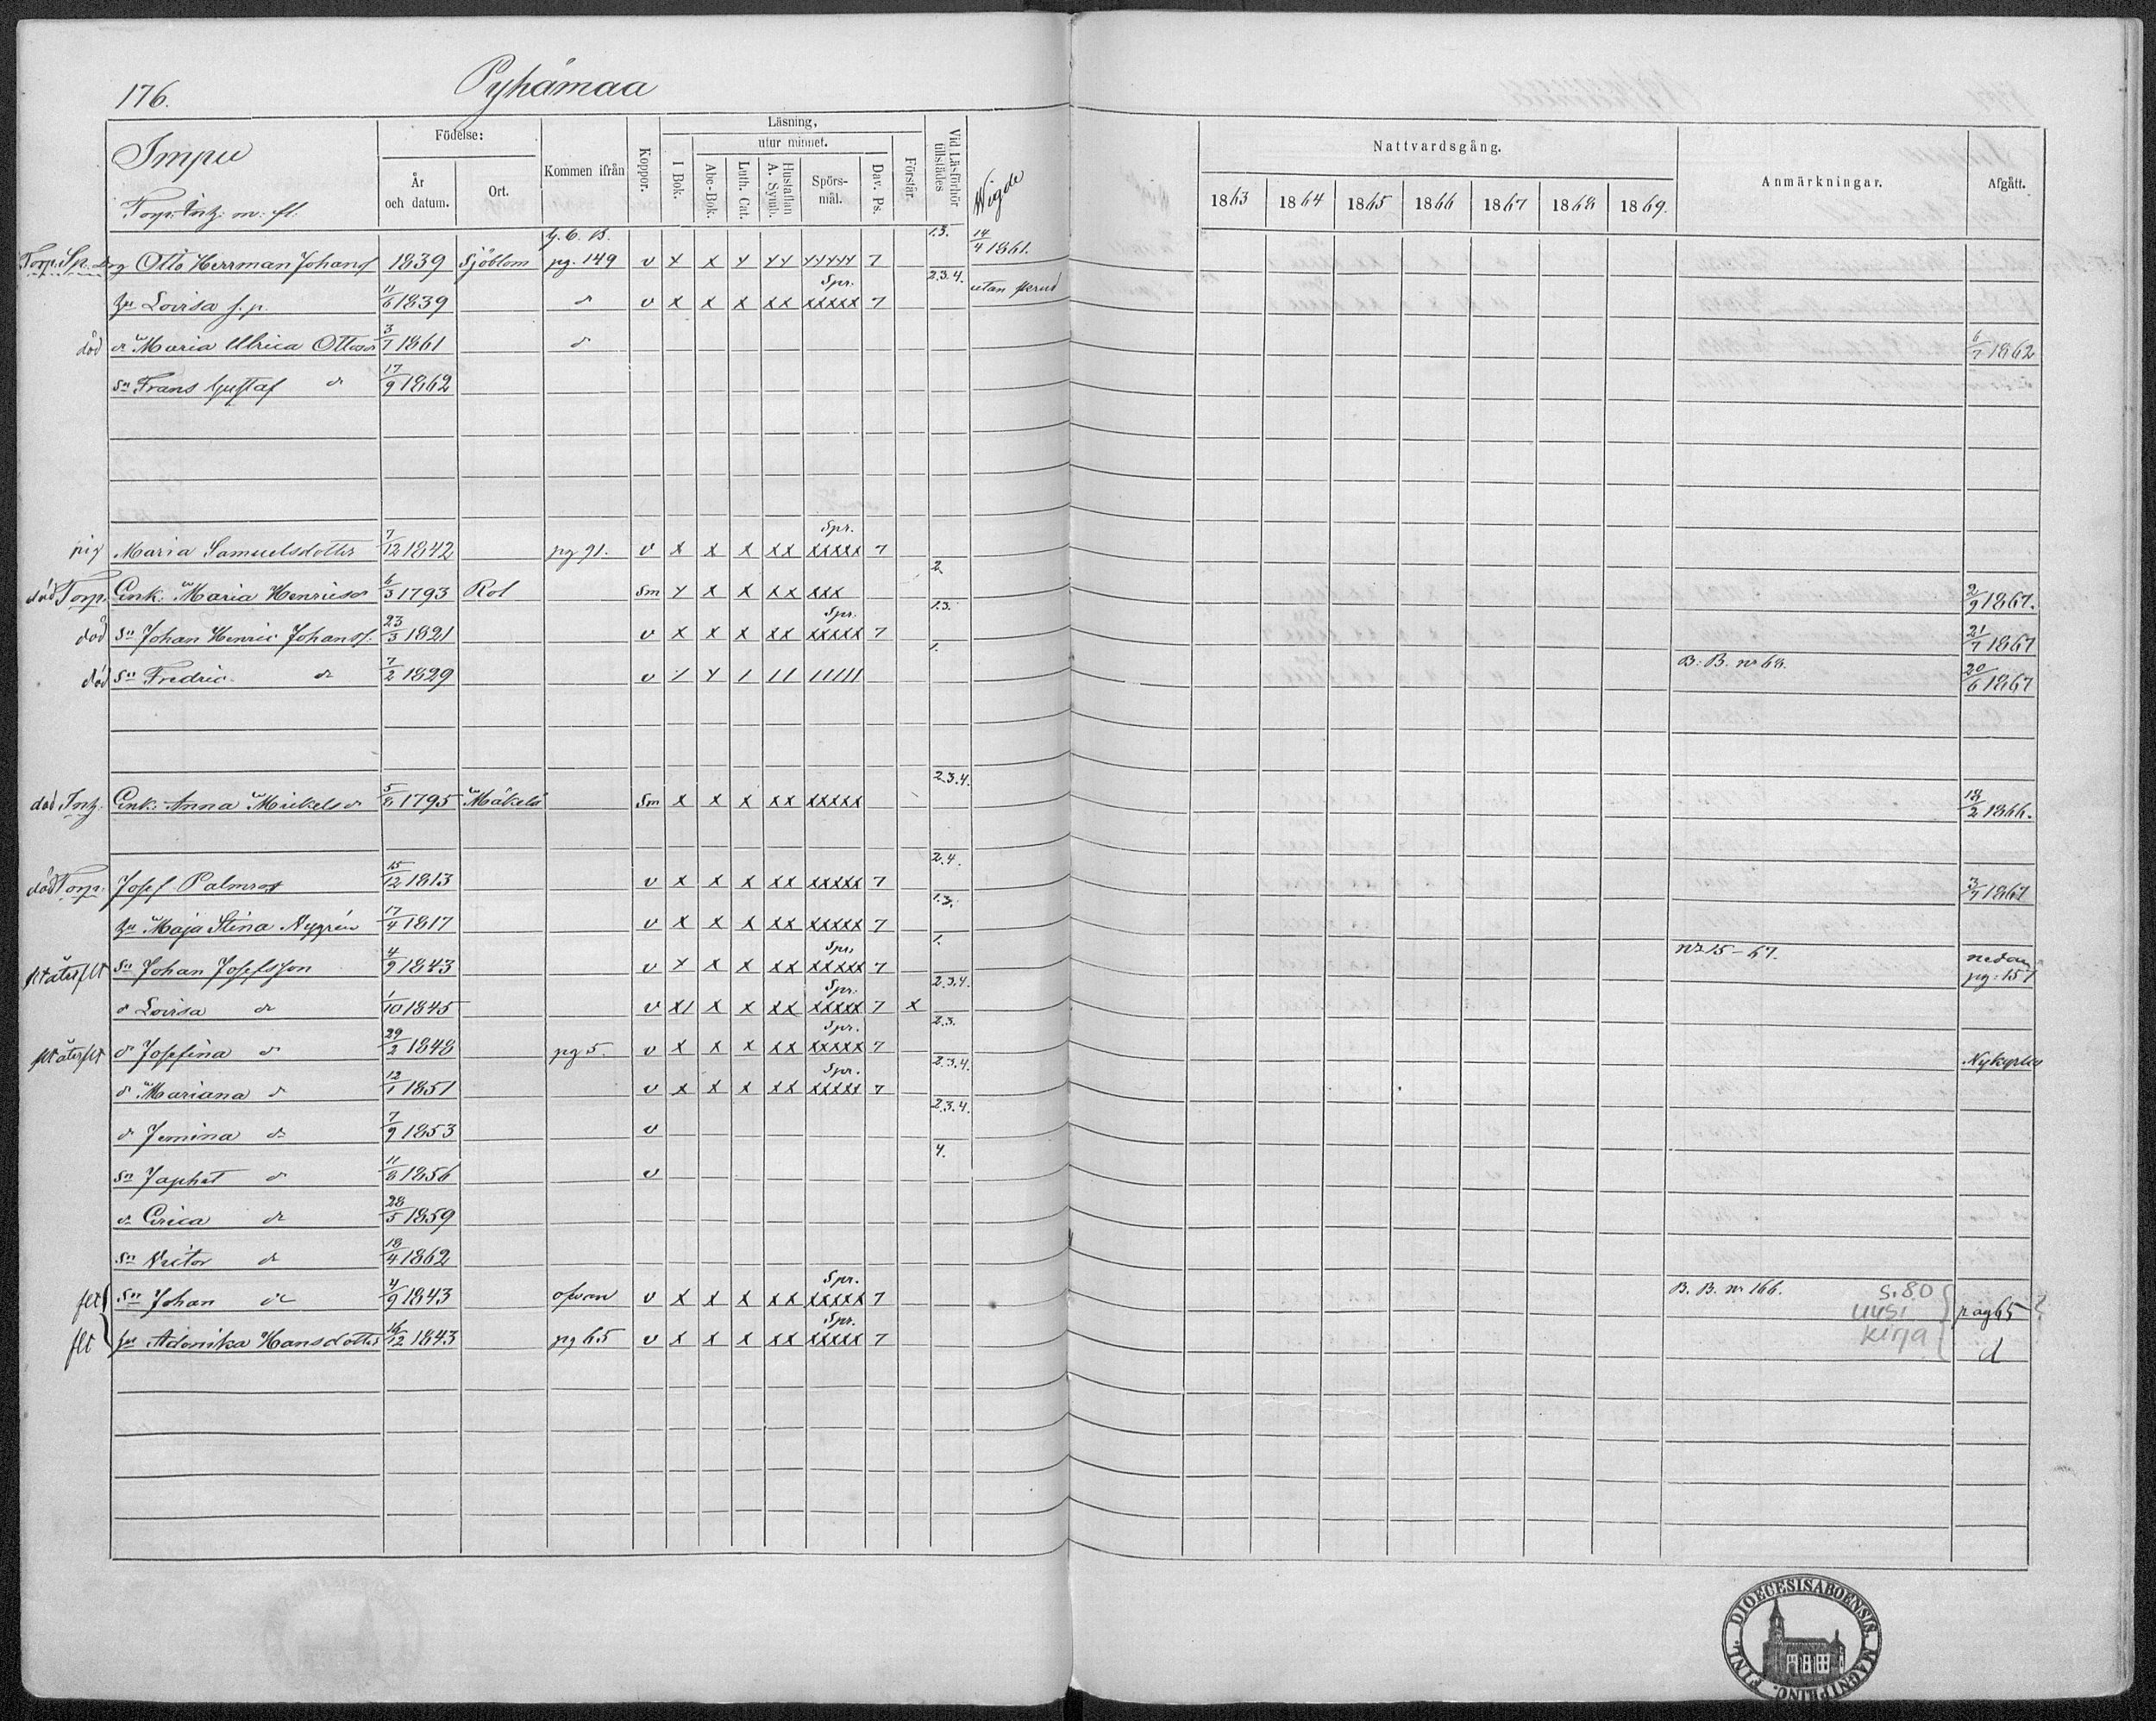 176. Pyhämaa
Impu
Torp. Intz. m. fl.
Födelse:
År och datum.
Ort.
Kommen ifrån
Koppor.
Läsning,
I Bok.
utur minnet.
Abc-Bok.
Luth. Cat.
Hustaflan A. Symb.
Spörsmål.
Dav. Ps.
Förstår.
Vid Läsförhör tillstädes
Wigde
Nattvardsgång.
1863 1864 1865 1866 1867 1868 1869.
Anmärkningar.
Afgått.
Otto Herrman Johans 1839 Sjöblom G. C. B. pg. 149 v 7 1.3. 14/4 1861.
hu Lovisa 11/6 1839 d v x x x xx Spr. xxxxx 7 2.3.4. utan skrud
död dr Maria Ulrica Ottos 3/7 1861 d 6/7 1862
sn Frans Gustaf d 17/9 1862
pig Maria Samuelsdotter 7/12 1842 pg 91. v x x x xx Spr. xxxxx 7
död Torp. Enk. Maria Henrics 6/3 1793 Rol sm x x x xx xxx 2 2/9 1867.
död sn Johan Henric Johanss. 23/3 1821 v x x x xx Spr. xxxxx 7 1.3. 21/7 1867
död sn Fredric d 7/2 1829 v 1. B. B. nr 68. 20/6 1867
död Intz. Enk. Anna Mickels d 5/8 1795 Mäkelä sm x x x xx xxxxx 2.3.4. 18/2 1866.
död Torp. Josef Palmros 15/12 1813 v x x x xx xxxxx 7 2.4. 3/7 1867
hu Maja Stina Nygrén 17/4 1817 v x x x xx xxxxx 7 1.3.
flt åter flt sn Johan Josefsson 4/9 1843 v x x x xx Spr. xxxxx 7 1. nr 15-67. nedan pg: 157
d Lovisa d 1/10 1845 v x1 x x xx Spr. xxxxx 7 x 2.3.4.
flt åter flt d Josefina d 29/2 1848 pg 5. v x x x xx Spr. xxxxx 7 2.3. Nykyrko
d Mariana d 12/1 1851 v x x x xx Spr. xxxxx 7 2.3.4.
d Jemina d 7/9 1853 v 2.3.4.
sn Japhet d 11/8 1856 v 4.
d Erica d 28/5 1859
sn Victor d 18/4 1862
flt sn Johan d 4/9 1843 ofvan v x x x xx Spr. xxxxx 7 B. B. nr 166. s. 80 pag 65
flt hu Adamika Hansdotter 16/12 1843 pg 65 v x x x xx Spr. xxxxx 7 uusi kirja d
DIOECESIS ABOENSIS. MAGNI PRINC. FINL.